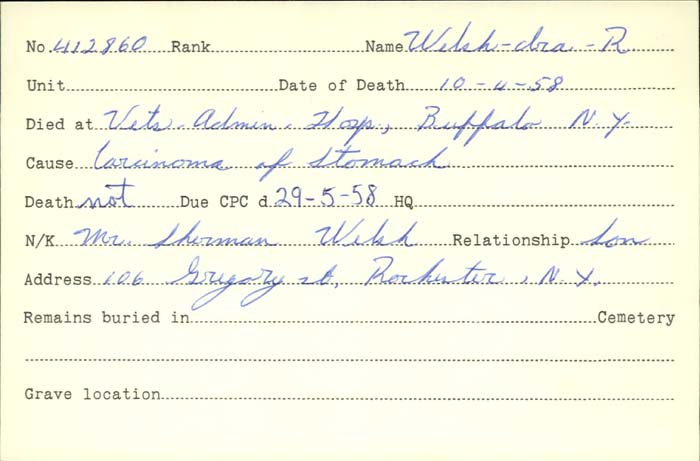 No. 412860 Rank Name Welsh - Ira - R
Unit Date of Death 10-4-58
Died at Vets. Admin. Hosp, Buffalo N.Y.
Cause Carcinoma of Stomach
Death not Due CPC d 29-5-58 HQ
N/K Mr. Sherman Welsh Relationship Son
Address 106 Gregory st, Rochester, N.Y.
Remains buried in Cemetery
Grave location